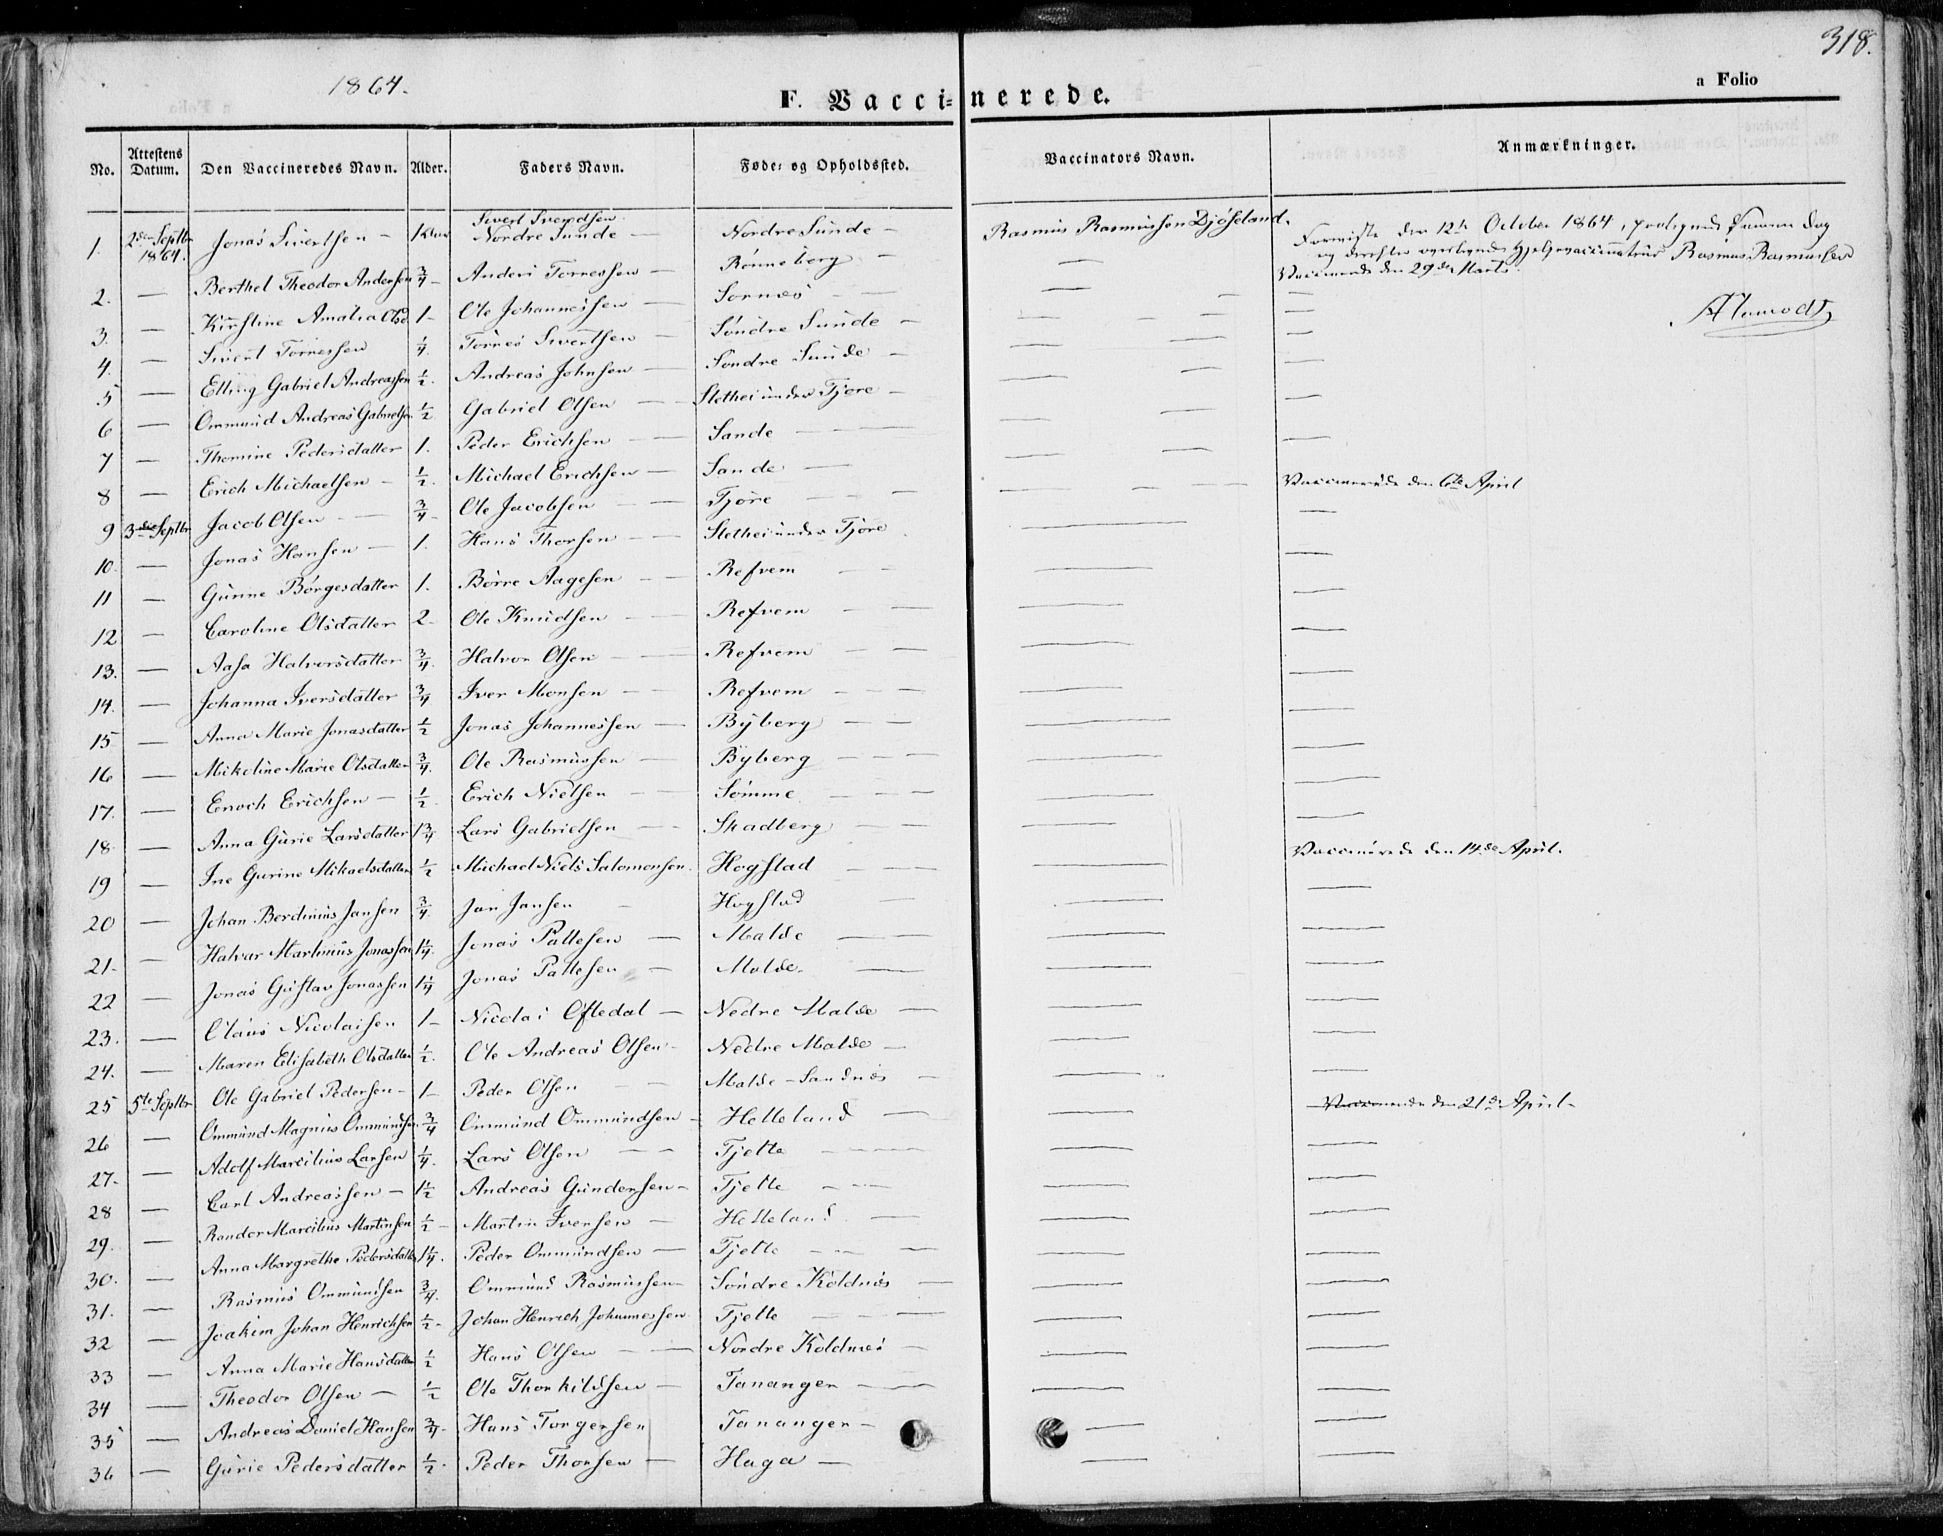 318.
1864.
a Folio
F. Vaccinerede.
No. Attestens Datum. Den Vaccineredes Navn. Alder. Faders Navn. Føde- og Opholdssted. Vaccinators Navn. Anmærkninger.
1. 2den Septbr 1864. Jonas Sivertsen — 1 Sivert Svendsen Nordre Sunde — Nordre Sunde — Rasmus Rasmussen Fremviste den 12te October 1864,
Rasmus Rasmussen
2. — Berthel Theodor Andersen 3/4 — Anders Torressen — Rønneberg — — Vaccinerede den 29de Marts.
3. — Kirstine Amalia Olsd. 1 — Ole Johannessen — Sornæs — — —
4. — Sivert Torressen 1/4. Torres Sivertsen — Søndre Sunde — — —
5 — Elling Gabriel Andreassen 1/2. Andreas Johnsen — Søndre Sunde — — —
6 — Ommund Andreas Gabrielsen 1/2 Gabriel Olsen — Slethei under Tjore — — —
7 — Thomine Pedersdatter 1. Peder Erichsen — Sande — — —
8 — Erich Michaelsen — 1/2. Michael Erichsen — Sande — — Vaccinerede den 6te April
9 3die Septbr Jacob Olsen — 3/4 — Ole Jacobsen — Tjore — — —
10. — Jonas Hansen — 1. Hans Thorsen — Slethei under Tjore — —
11 — Gunne Børgesdatter 1. Børre Aagesen — Refvem — — —
12 — Caroline Olsdatter 2 — Ole Knudsen — Refvem — — —
13. — Aasa Halvorsdatter 3/4. Halvor Olsen — Refvem — — —
14. — Johanna Iversdatter 3/4 Iver Monsen — Refvem — — —
15 — Anna Marie Jonasdatter 1/2 Jonas Johannessen — Byberg — — —
16 — Mikeline Marie Olsdatter 3/4. Ole Rasmussen — Byberg — — —
17. — Enoch Erichsen — 1/2. Erich Nielsen — Sømme — — —
18 — Anna Gurie Larsdatter 1 3/4 Lars Gabrielsen — Skadberg — — Vaccinerede den 14de April.
19 — Ine Gurine Mikaelsdatter 1/2 Michael Niels Salomonsen. Hogstad — — —
20 — Johan Berdinius Jansen 3/4. Jan Jansen — Hogstad — — —
21. — Halvar Martinius Jonassen 1 1/4. Jonas Pallesen — Malde — — —
22 — Jonas Gustav Jonassen 1 1/4 Jonas Pallesen — Malde. — — —
23. — Olaus Nicolaisen 1 — Nicolai Oftedal — Nedre Malde — — —
24. — Maren Elisabeth Olsdatter 1/2. Ole Andreas Olsen — Nedre Malde — — —
25 5te Septbr Ole Gabriel Pedersen — 1 — Peder Olsen — Malde — Sandnes — — Vaccinerede den 21de April —
26 — Ommund Magnus Ommundsen 3/4 Ommund Ommundsen — Helleland — — —
27. — Adolf Marcilius Larsen 1/4. Lars Olsen — Tjelte — — —
28 — Carl Andreassen — 1 1/2 Andreas Gundersen — Tjelte — — —
29. — Randor Marcilius Martinsen 1/2 — Martin Iversen — Helleland. — — —
30. — Anna Margrethe Pedersdatter 1 1/4. Peder Ommundsen — Tjelte — — —
31. — Rasmus Ommundsen 3/4. Ommund Rasmussen — Søndre Koldnes — — —
32 — Joakim Johan Henrichsen 1/2 — Johan Henrich Johannessen Tjelte — — —
33 — Anna Marie Hansdatter 1/2 Hans Olsen — Nordre Koldnæs — — —
34 — Theodor Olsen — 1/2 Ole Thorkildsen — Tananger — — —
35 — Andreas Daniel Hansen 3/4. Hans Torgersen Tananger — — —
36 — Gurie Pedersdatter 1/2. Peder Thorsen — Haga — — —